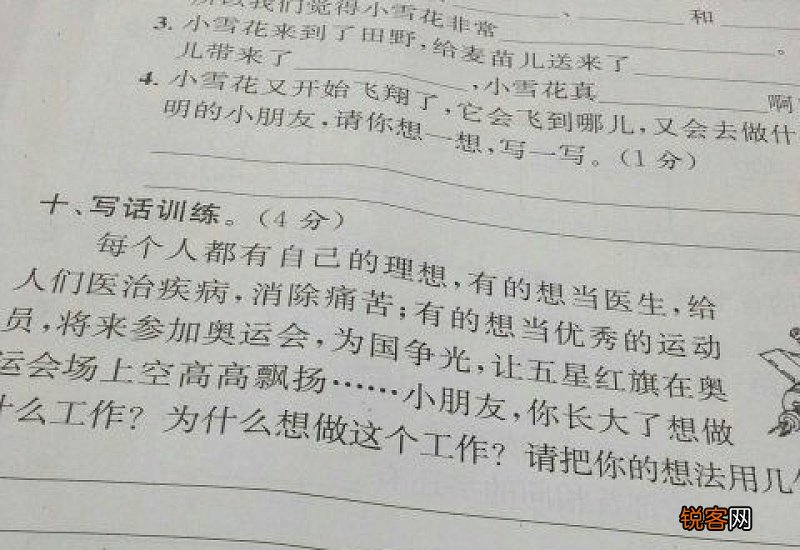 所以我们觉得小雪花非常 、 和
3. 小雪花来到了田野,给麦苗儿送来了 。
儿带来了 ,小雪花真 啊
4. 小雪花又开始飞翔了,它会飞到哪儿,又会去做什
明的小朋友,请你想一想,写一写。(1分)
十、写话训练。(4分)
每个人都有自己的理想,有的想当医生,给
人们医治疾病,消除痛苦;有的想当优秀的运动
员,将来参加奥运会,为国争光,让五星红旗在奥
运会场上空高高飘扬……小朋友,你长大了想做
什么工作?为什么想做这个工作?请把你的想法用几句
锐客网